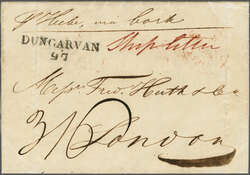 pr Hecla, via Cork
DUNGARVAN
97
Ship letter
Messrs Fred. Huth & Co
3/6 London